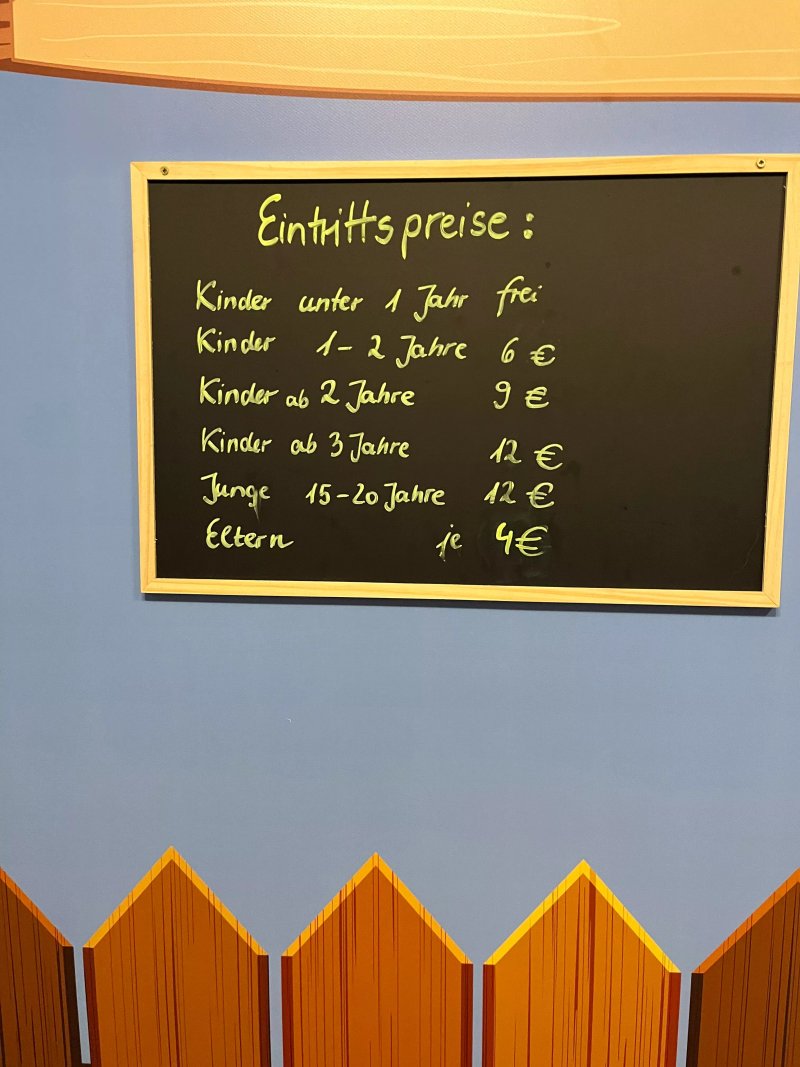 Eintrittspreise:
Kinder unter 1 Jahr frei
Kinder 1-2 Jahre 6 €
Kinder ab 2 Jahre 9 €
Kinder ab 3 Jahre 12 €
Junge 15-20 Jahre 12 €
Eltern je 4€